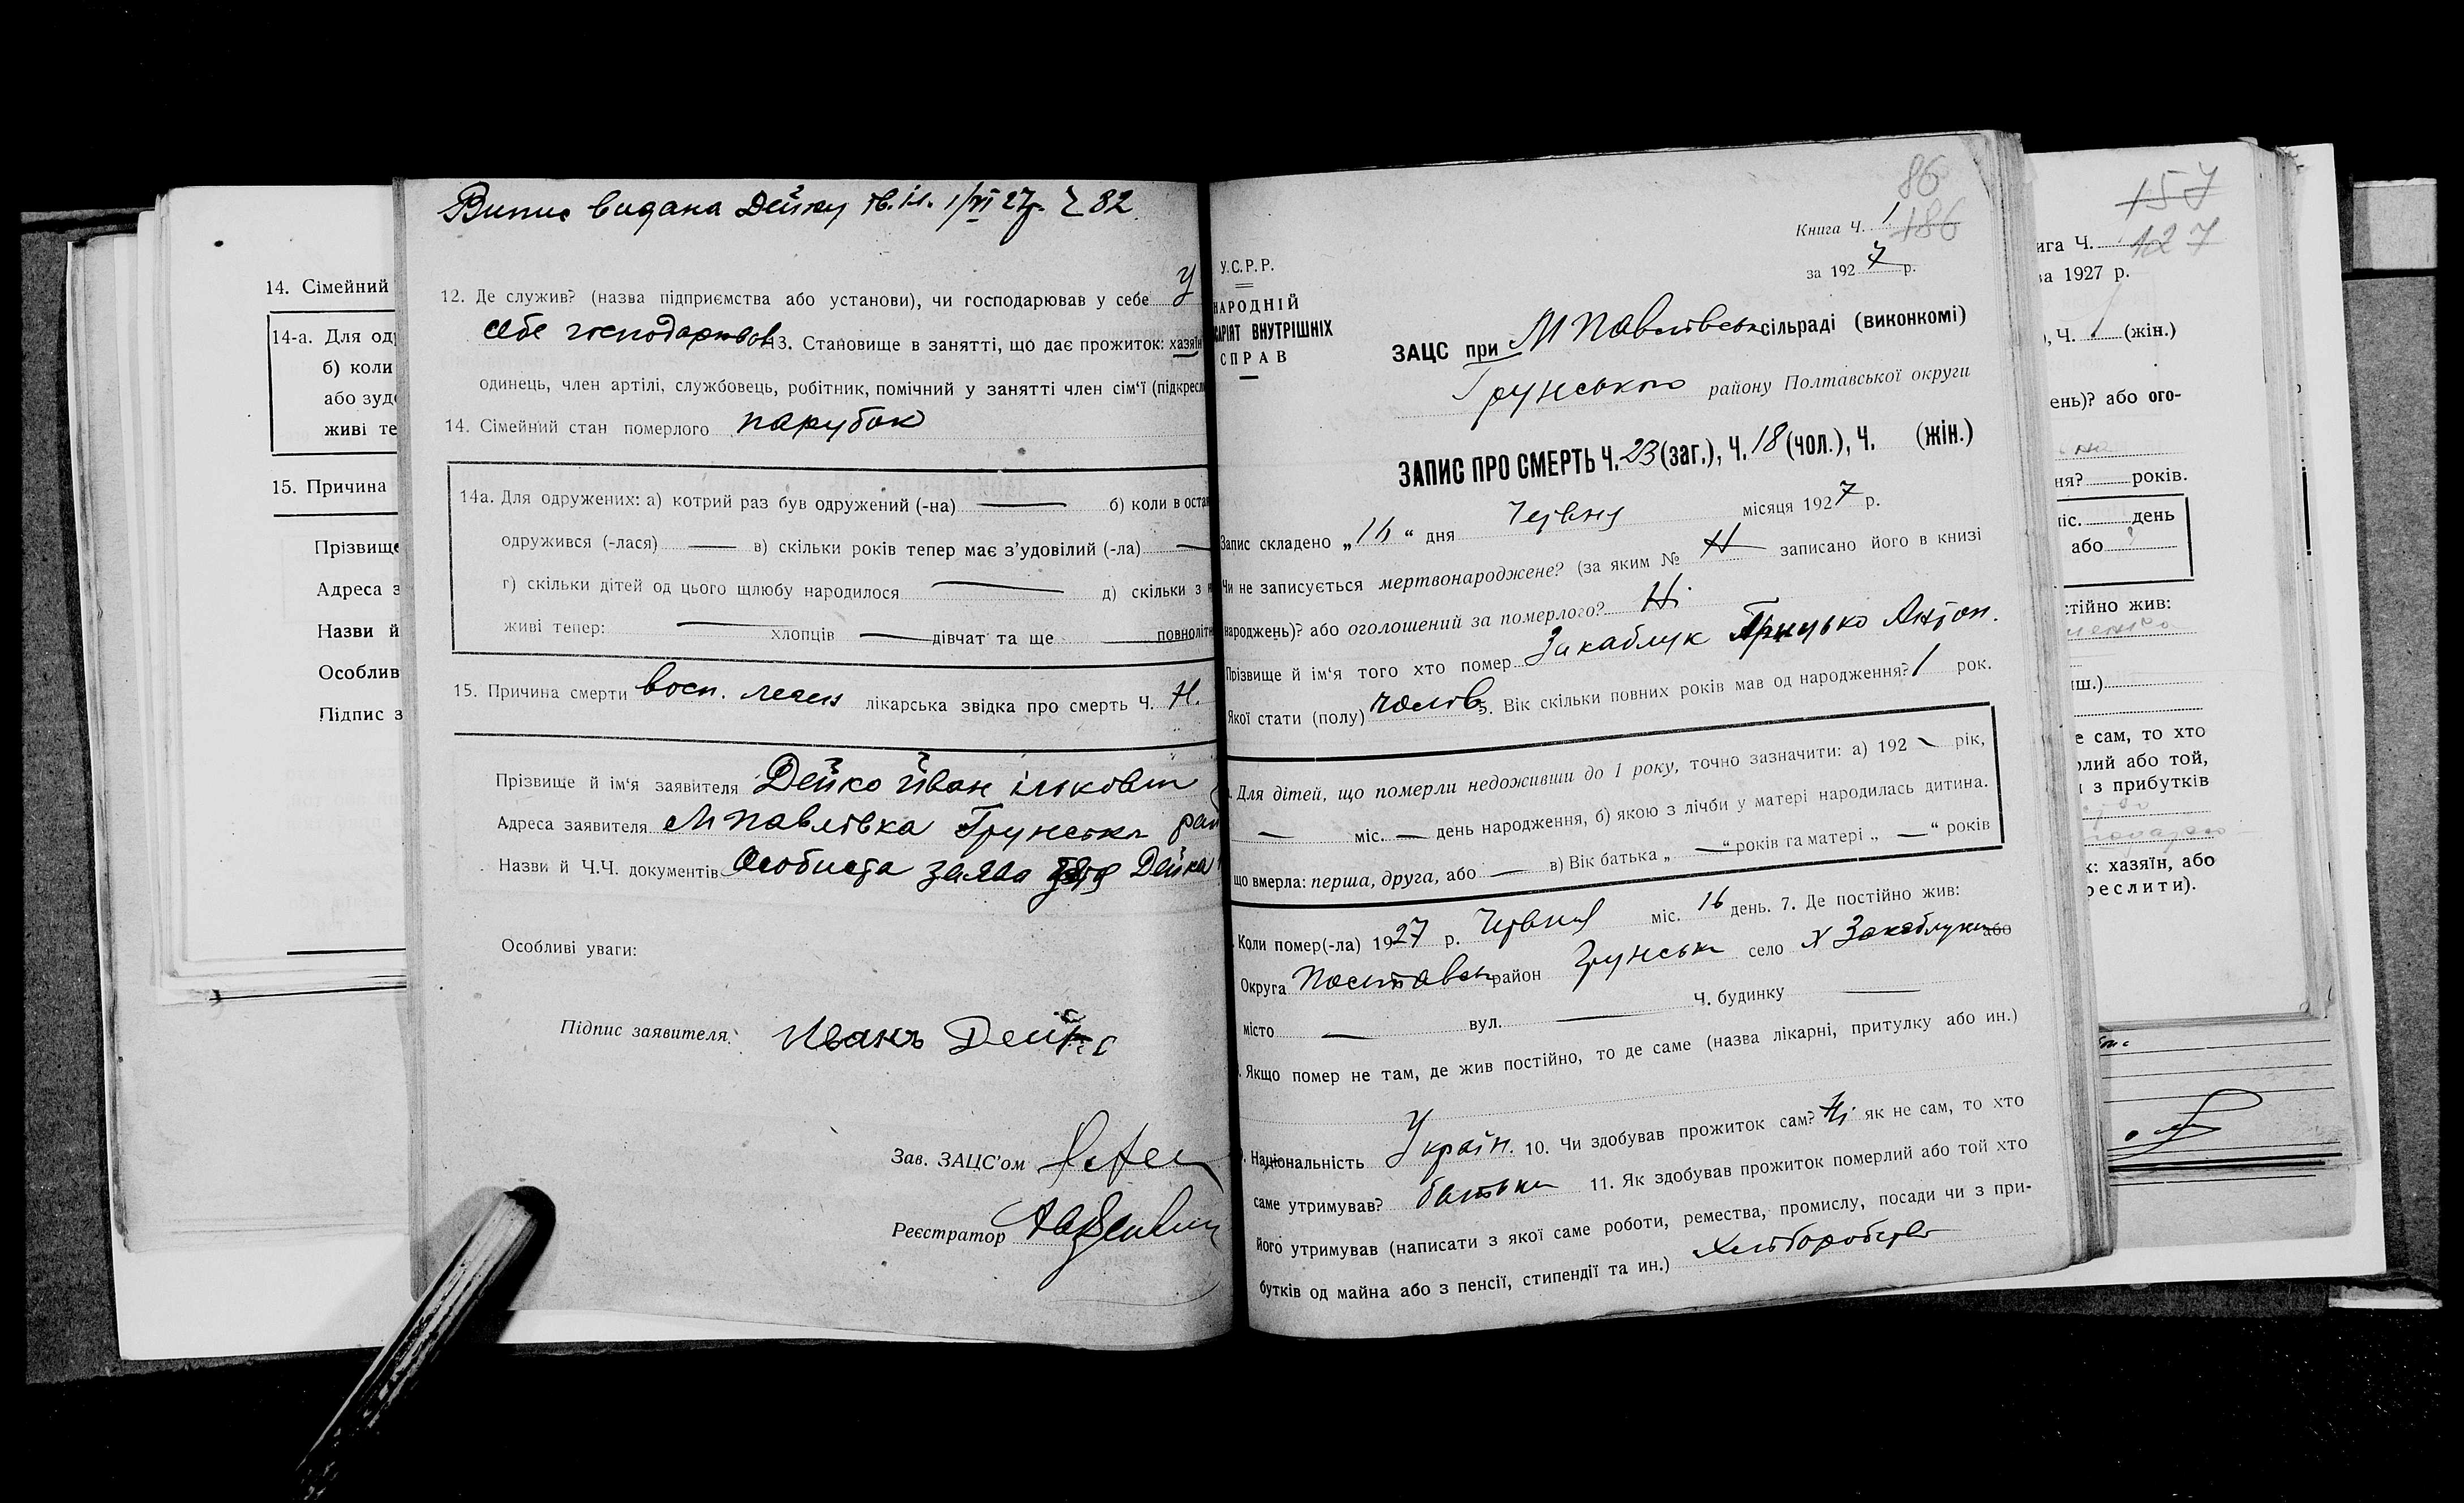 14. Сімейний
14-а. Для од
б) коли
або зуд
живі те
15. Причина
Прізвище
Адреса з
Назви й
Особлив
Підпис з
Випис видана Дейку 1/VI 27р. 82
12. Де служив? (назва підприємства або установи), чи господарював у себе У
себе господарював 13. Становище в занятті, що дає прожиток: хазяїн
одинець, член артілі, службовець, робітник, помічний у занятті член сім'ї (підкресл
14. Сімейний стан померлого парубок
14а. Для одружених: а) котрий раз був одружений (-на) — б) коли в оста
одружився (-лася) — в) скільки років тепер має з'удовілий (-ла) —
г) скільки дітей од цього щлюбу народилося — д) скільки з н
живі тепер: — хлопців — дівчат та ще повноліт
15. Причина смерти восп. леген лікарська звідка про смерть Ч. Н.
Прізвище й ім'я заявителя Дейко Йван
Адреса заявителя М Павлівка Грунськ рай
Назви й Ч.Ч. документів Особиста заява Дейка
Особливі уваги:
Підпис заявителя: Иванъ Дейко
Зав. ЗАЦС'ом
Реєстратор
86
186
Книга Ч. 1
за 1927 р.
У.С.Р.Р.
НАРОДНІЙ
САРІЯТ ВНУТРІШНІХ
СПРАВ
ЗАЦС при М Павлівськ сільраді (виконкомі)
Грунського району Полтавської округи
ЗАПИС ПРО СМЕРТЬ Ч. 23 (заг.), Ч. 18 (чол.), Ч. (жін.)
Запис складено „16“ дня Червня місяця 1927 р.
Чи не записується мертвонароджене? (за яким № Н записано його в книзі
народжень)? або оголошений за померлого? Ні
Прізвище й ім'я того хто помер Закаблук Грицько Антон.
Якої стати (полу) чолов 5. Вік скільки повних років мав од народження? 1 рок.
Для дітей, що померли недоживши до 1 року, точно зазначити: а) 192 — рік,
— міс. — день народження, б) якою з лічби у матері народилась дитина.
що вмерла: перша, друга, або — в) Вік батька „ — “ років та матері „ — “ років
Коли помер(-ла) 1927 р. Червня міс. 16 день. 7. Де постійно жив:
Округа Полтавськ район Грунськ село Х Закаблуки або
місто — вул. — Ч. будинку —
Якщо помер не там, де жив постійно, то де саме (назва лікарні, притулку або ин.)
Національність Україн. 10. Чи здобував прожиток сам? Ні як не сам, то хто
саме утримував? батьки 11. Як здобував прожиток померлий або той хто
його утримував (написати з якої саме роботи, ремества, промислу, посади чи з при-
бутків од майна або з пенсії, стипендії та ин.) Хліборобство
157
127
ига Ч.
за 1927 р.
), Ч. (жін.)
ень)? або ого-
ня? років.
міс. день
або
стійно жив:
иш.)
е сам, то хто
рлий або той,
и з прибутків
к: хазяїн, або
реслити).